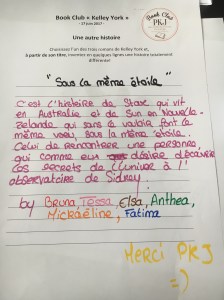 Book Club « Kelley York »
- 27 juin 2017 -
Book Club
PKJ
Une autre histoire
Choisissez l'un des trois romans de Kelley York et,
à partir de son titre, inventez en quelques lignes une histoire totalement
différente !
"Sous la même étoile"
C'est l'histoire de Stase qui vit
en Australie et de Sun en Nouvelle-
Zelande qui sans le savoir font le
même voeu, sous la même étoile.
Celui de rencontrer une personne,
qui comme eux désire découvrir
les secrets de l'Univers à l'
observatoire de Sidney.
by Bruna, Tessa, Elsa, Anthea,
Mickaëline, Fatima
Merci PKJ
=)